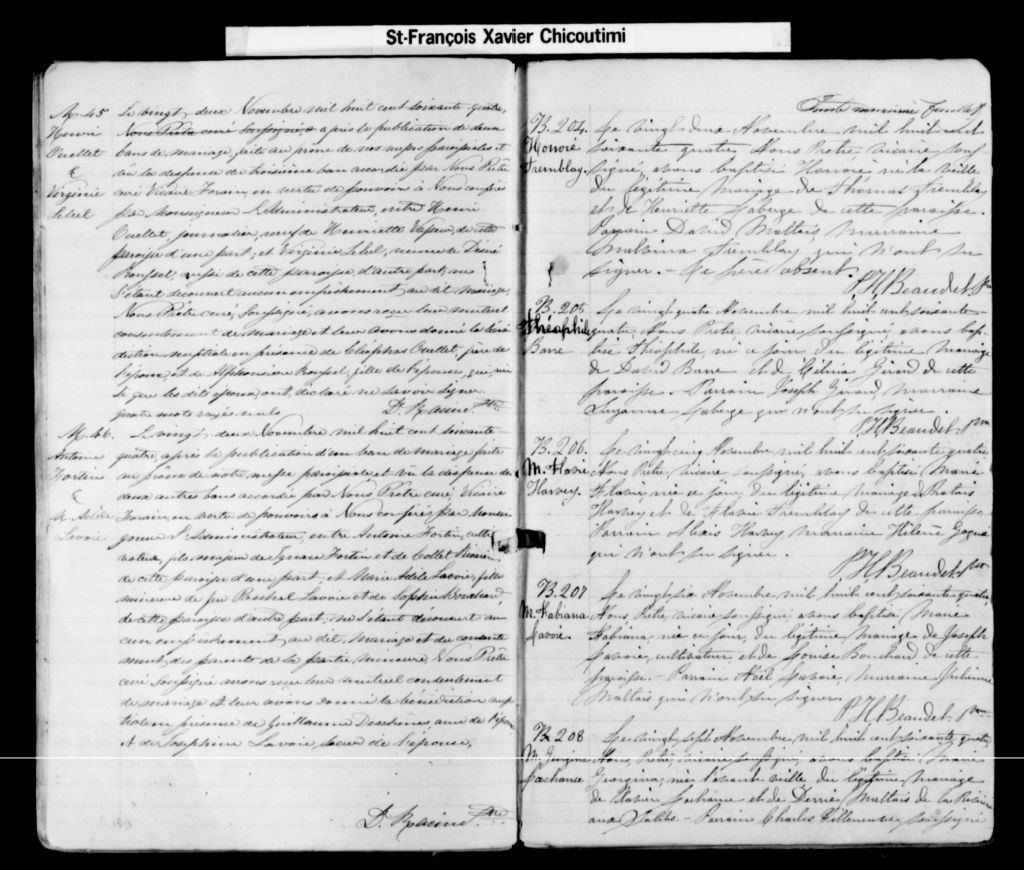 St-François Xavier Chicoutimi
M. 45
Henri
Ouellet
&
Virginie
Lebel
Le vingt deux Novembre mil huit cent soixante quatre,
Nous Prêtre curé soussigné, après la publication de deux
bans de mariage, faite au prône de nos messes paroissiales et
vu la dispense du troisième ban accordée par Nous Prêtre
curé Vicaire Forain, en vertu de pouvoirs à Nous confiés
par Monseigneur L'Administrateur, entre Henri
Ouellet, journalier, veuf de Henriette Vasseur, de cette
paroisse d'une part, et Virginie Lebel, veuve de Désiré
Roussel, aussi de cette paroisse, d'autre part, ne
s'étant découvert aucun empêchement au dit mariage,
Nous Prêtre curé, soussigné, avons reçu leur mutuel
consentement de mariage et leur avons donné la béné
diction nuptiale en présence de Cléophas Ouellet, frère de
l'époux, et de Alphonsine Roussel, fille de l'épouse, qui, ain
si que les dits époux, ont déclaré ne savoir signer.
quatre mots rayés nuls D. Racine Ptre
M. 46.
Antoine
Fortin
&
M. Adèle
Lavoie
Le vingt deux Novembre mil huit cent soixante
quatre, après la publication d'un ban de mariage faite
au prône de notre messe paroissiale et vu la dispense de
deux autres bans accordée par Nous Prêtre curé, Vicaire
Forain, en vertu de pouvoirs à Nous confiés par Monsei
gneur L'Administrateur, entre Antoine Fortin, culti
vateur, fils majeur de Ignace Fortin et de Collet
de cette paroisse d'une part, et Marie Adèle Lavoie, fille
mineure de feu Paschal Lavoie et de Sophie Bouchard,
de cette paroisse d'autre part, ne s'étant découvert au
cun empêchement au dit Mariage et du consente
ment des parents de la partie mineure, Nous Prêtre
curé soussigné avons reçu leur mutuel consentement
de mariage et leur avons donné la bénédiction nup
tiale en présence de Guillaume Deschêne, ami de l'époux
et de Josephine Lavoie, soeur de l'épouse,
D. Racine Ptre
feuillet
B. 204.
Honoré
Tremblay.
Le vingt deux Novembre mil huit cent
soixante quatre Nous Prêtre vicaire sous
signé, avons baptisé Honoré né la veille
du légitime mariage de Thomas Tremblay
et de Henriette Laberge de cette paroisse.
Parrain David Maltais, Marraine
Malvina Tremblay qui n'ont su
signer. - Le père absent.
P. H. Beaudet Ptre
B. 205
Théophile
Barre
Le vingt quatre Novembre, mil huit cent soixante
quatre, Nous Prêtre, vicaire soussigné, avons bap
tisé Théophile, né ce jour, du légitime mariage
de David Barre et de Célina Girard de cette
paroisse. - Parrain Joseph Girard, Marraine
Suzanne Laberge qui n'ont su signer
P. H. Beaudet Ptre
B. 206.
M. Flavie
Harvey.
Le vingt cinq Novembre, mil huit cent soixante quatre,
Nous Prêtre, vicaire soussigné, avons baptisé Marie
Flavie née ce jour, du légitime mariage de
Harvey et de Flavie Tremblay de cette paroisse,
Parrain Alexis Harvey Marraine Hélène Gagné
qui n'ont su signer.
P. H. Beaudet Ptre
B. 207
M. Fabiana
Lavoie.
Le vingt six Novembre, mil huit cent soixante quatre,
Nous Prêtre, vicaire soussigné avons baptisé Marie
Fabiana née ce jour, du légitime mariage de Joseph
Lavoie, cultivateur, et de Louise Bouchard de cette
paroisse. - Parrain Noël Lavoie, Marraine Julienne
Maltais qui n'ont su signer
P. H. Beaudet Ptre
B. 208
M. Georgina
Lachance
Le vingt sept Novembre, mil huit cent soixante quatre
Nous, Prêtre, vicaire soussigné, avons baptisé Marie
Georgina, née l'avant veille du légitime mariage
de Xavier Lachance et de Maltais de la Rivière
aux Sables. - Parrain Charles Villeneuve soussigné